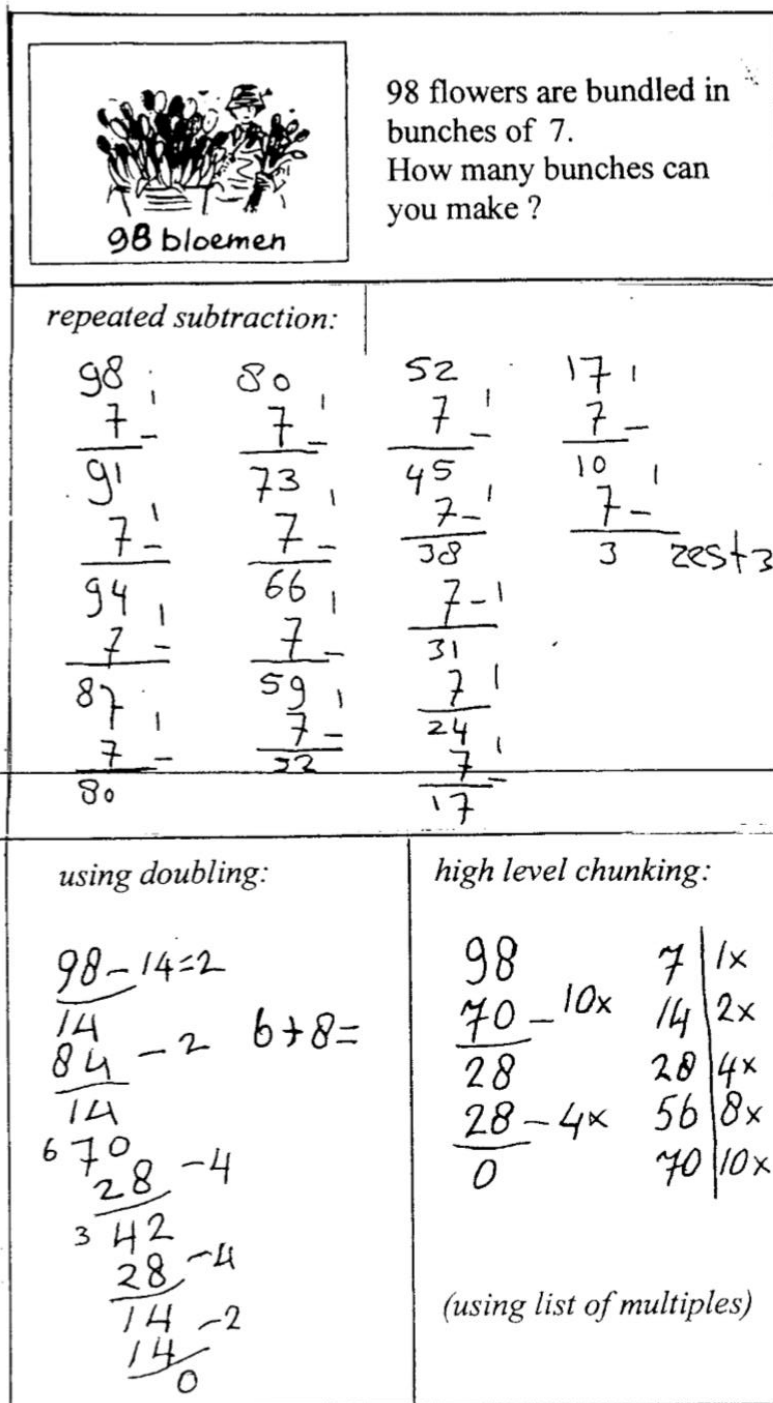 98 flowers are bundled in
bunches of 7.
How many bunches can
you make ?
98 bloemen
repeated subtraction:
98
7 - 1
91
7 - 1
94
7 - 1
87
7 - 1
80
80
7 - 1
73
7 - 1
66
7 - 1
59
7 - 1
52
52
7 - 1
45
7 - 1
38
7 - 1
31
7 1
24
7 - 1
17
17
7 - 1
10
7 - 1
3 rest 3
using doubling:
98 - 14=2
14
84 - 2 6+8=
14
6 70
28 - 4
3 42
28 - 4
14 - 2
14
0
high level chunking:
98
70 - 10x
28
28 - 4x
0
7 | 1x
14 | 2x
28 | 4x
56 | 8x
70 | 10x
(using list of multiples)